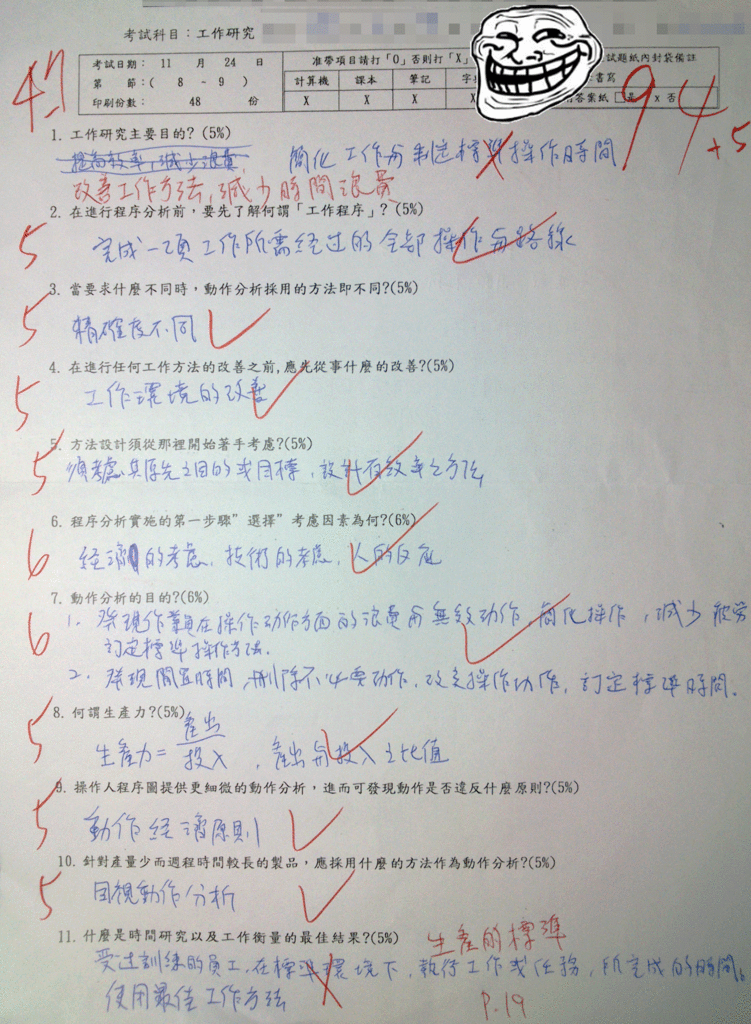 考試科目：工作研究
考試日期： 11 月 24 日 准帶項目請打「O」否則打「X」 試題紙內封袋備註
第 節：( 8 - 9 ) 計算機 課本 筆記 書寫
印刷份數： 48 份 X X X 答案紙 是 x 否
47
94
+5
1. 工作研究主要目的? (5%)
提高效率，減少浪費 簡化工作与制定標準操作時間
改善工作方法，減少時間浪費
2. 在進行程序分析前，要先了解何謂「工作程序」? (5%)
5
完成一項工作所需經过的全部操作与路線
3. 當要求什麼不同時，動作分析採用的方法即不同?(5%)
5
精確度不同
4. 在進行任何工作方法的改善之前,應先從事什麼的改善?(5%)
5
工作環境的改善
5. 方法設計須從那裡開始著手考慮?(5%)
5
須考慮其原先之目的或目標，設計有效率之方法
6. 程序分析實施的第一步驟”選擇”考慮因素為何?(6%)
6
經濟的考慮，技術的考慮，人的反应
7. 動作分析的目的?(6%)
6
1. 發現作業員在操作动作方面的浪費与無效动作，簡化操作，減少疲勞
訂定標準操作方法.
2. 發現閒置時間，刪除不必要动作，改善操作动作，訂定標準時間.
8. 何謂生產力?(5%)
5
生產力=產出/投入，產出与投入之比值
9. 操作人程序圖提供更細微的動作分析，進而可發現動作是否違反什麼原則?(5%)
5
動作經濟原則
10. 針對產量少而週程時間較長的製品，應採用什麼的方法作為動作分析?(5%)
5
目視動作分析
11. 什麼是時間研究以及工作衡量的最佳結果?(5%) 生產的標準
受过訓練的員工，在標準環境下，執行工作或任務，所完成的時間。
使用最佳工作方法 P.19